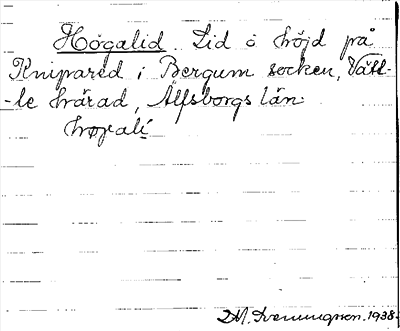 Högalid. Lid o höjd på
Knipared i Bergum socken, Vätt-
-le härad, Älfsborgs län.
høgalí
1938.